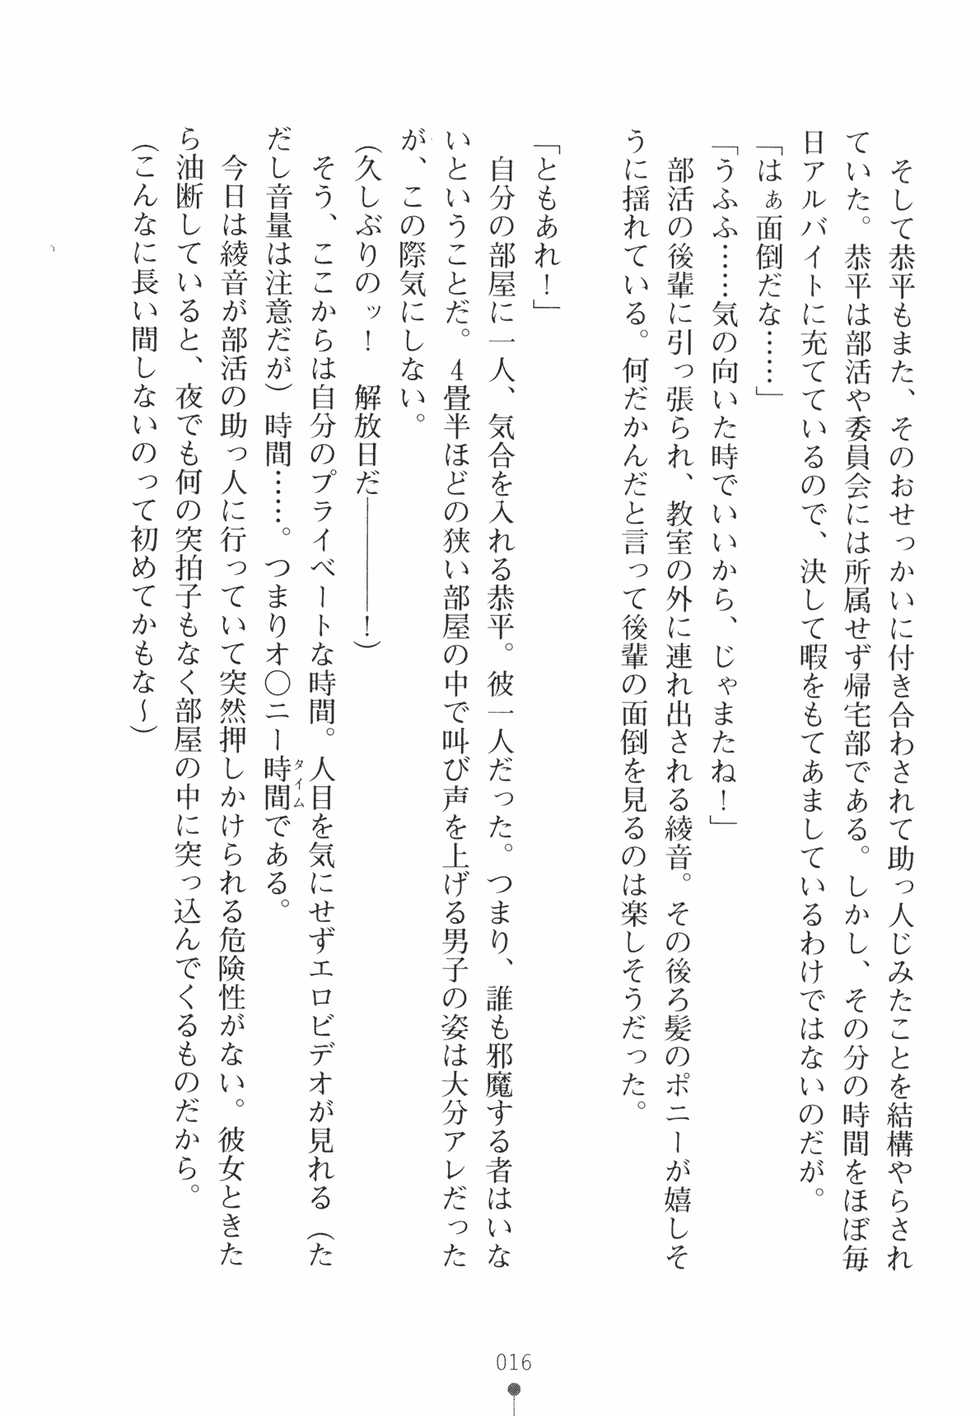 そして恭平もまた、そのおせっかいに付き合わされて助っ人じみたことを結構やらされ
ていた。恭平は部活や委員会には所属せず帰宅部である。しかし、その分の時間をほぼ毎
日アルバイトに充てているので、決して暇をもてあましているわけではないのだが。
「はぁ面倒だな……」
「うふふ……気の向いた時でいいから、じゃまたね！」
　部活の後輩に引っ張られ、教室の外に連れ出される綾音。その後ろ髪のポニーが嬉しそ
うに揺れている。何だかんだと言って後輩の面倒を見るのは楽しそうだった。
「ともあれ！」
　自分の部屋に一人、気合を入れる恭平。彼一人だった。つまり、誰も邪魔する者はいな
いということだ。４畳半ほどの狭い部屋の中で叫び声を上げる男子の姿は大分アレだった
が、この際気にしない。
（久しぶりのッ！　解放日だ――――！）
　そう、ここからは自分のプライベートな時間。人目を気にせずエロビデオが見れる（た
だし音量は注意だが）時間……。つまりオ〇ニー時間タイムである。
　今日は綾音が部活の助っ人に行っていて突然押しかけられる危険性がない。彼女ときた
ら油断していると、夜でも何の突拍子もなく部屋の中に突っ込んでくるものだから。
（こんなに長い間しないのって初めてかもな～）
016